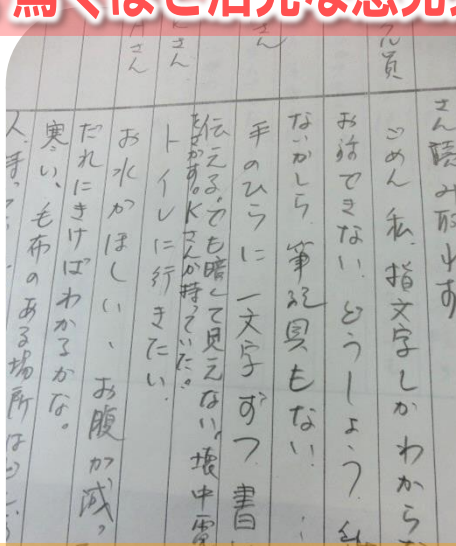 驚くほど活発な意見
員
さん
さん
さん
さん読み取れず
ごめん 私、指文字しかわからな
お話できない、どうしよう、私
ないかしら、筆記具もない、
手のひらに一文字ずつ書
伝える。でも暗くて見えない。懐中電
をさがす。Kさんが持っていた。
トイレに行きたい、
お水がほしい、お腹が減。
だれにきけばわかるかな。
寒い、毛布のある場所は